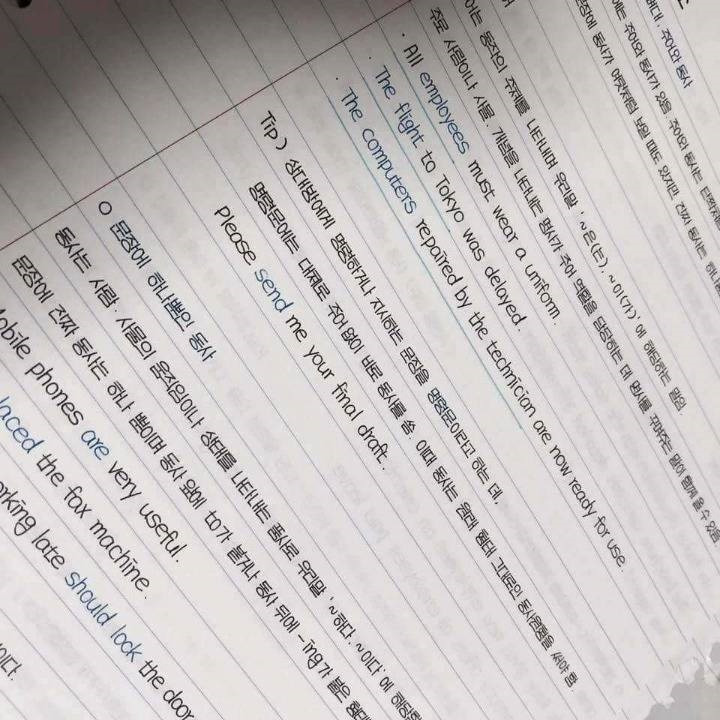 주어와 동사
에는 주어와 동사가 있음. 주어와 동사는
문장에 동사가 여러개처럼 보일 때도 있지만 진짜 동사는
하는 동작의 주체를 나타내며 우리말 '~은(는), ~이(가)'에 해당하는 말임.
주로 사람이나 사물, 개념을 나타내는 명사가 주어 역할을 담당하는 데 명사를 꾸며주는 말이 함께 올 수 있음
· All employees must wear a uniform.
· The flight to Tokyo was delayed.
· The computers repaired by the technician are now ready for use.
Tip) 상대방에게 명령하거나 지시하는 문장을 명령문이라고 하는 데,
명령문에는 대체로 주어 없이 바로 동사를 씀. 이때 동사는 원래 형태 그대로인 동사원형을 써야 함
Please send me your final draft.
○ 문장에 하나뿐인 동사
동사는 사람, 사물의 움직임이나 상태를 나타내는 품사로 우리말 '~하다, ~이다'에
문장에 진짜 동사는 하나 뿐이며 동사 앞에 to가 붙거나 동사 뒤에 -ing가 붙은
Mobile phones are very useful.
laced the fax machine.
orking late should lock the door
이다.